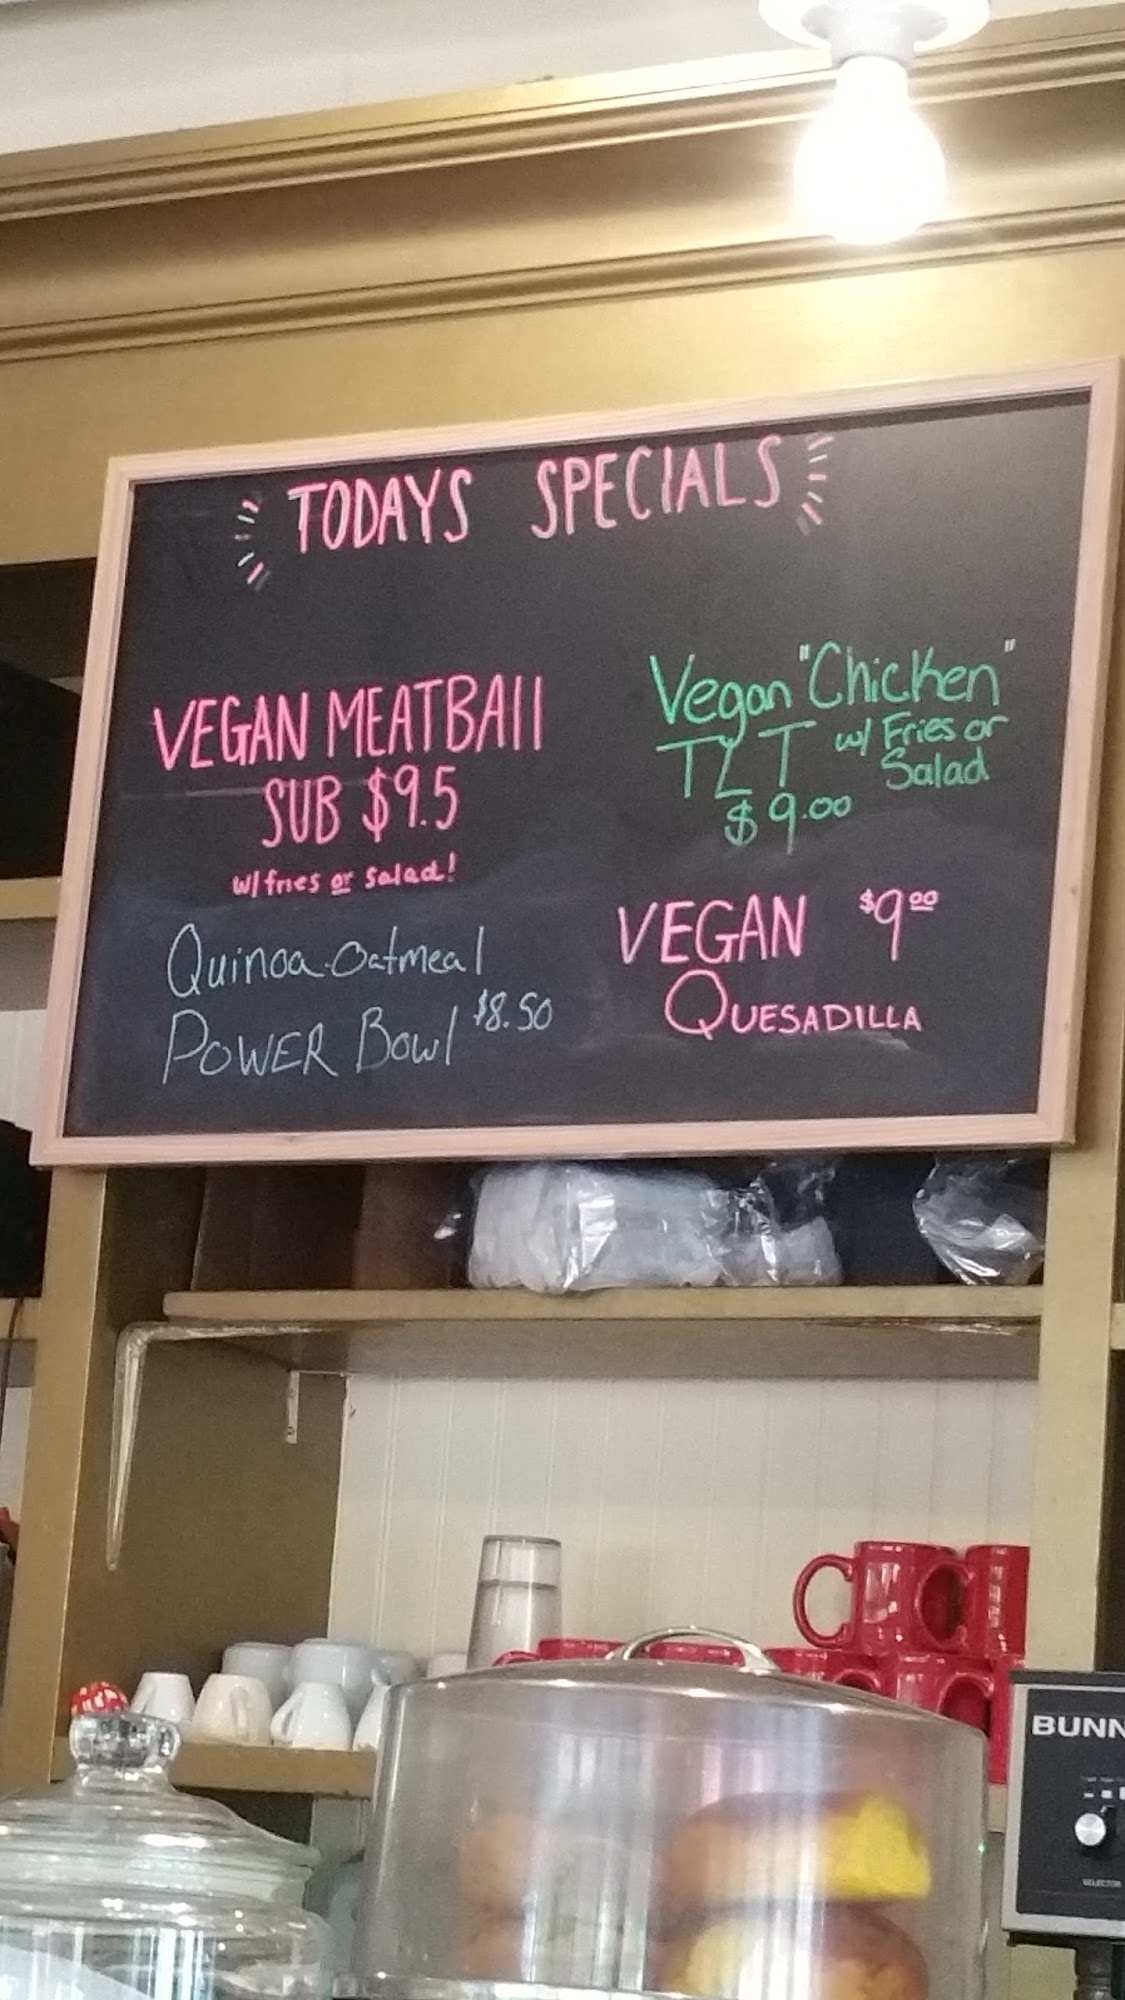 TODAYS SPECIALS
VEGAN MEATBAll
SUB $9.5
w/ fries or salad!
Quinoa-Oatmeal
POWER Bowl $8.50
Vegan "Chicken"
TLT w/ Fries or
Salad
$9.00
VEGAN $9.00
QUESADILLA
BUNN
SELECTOR